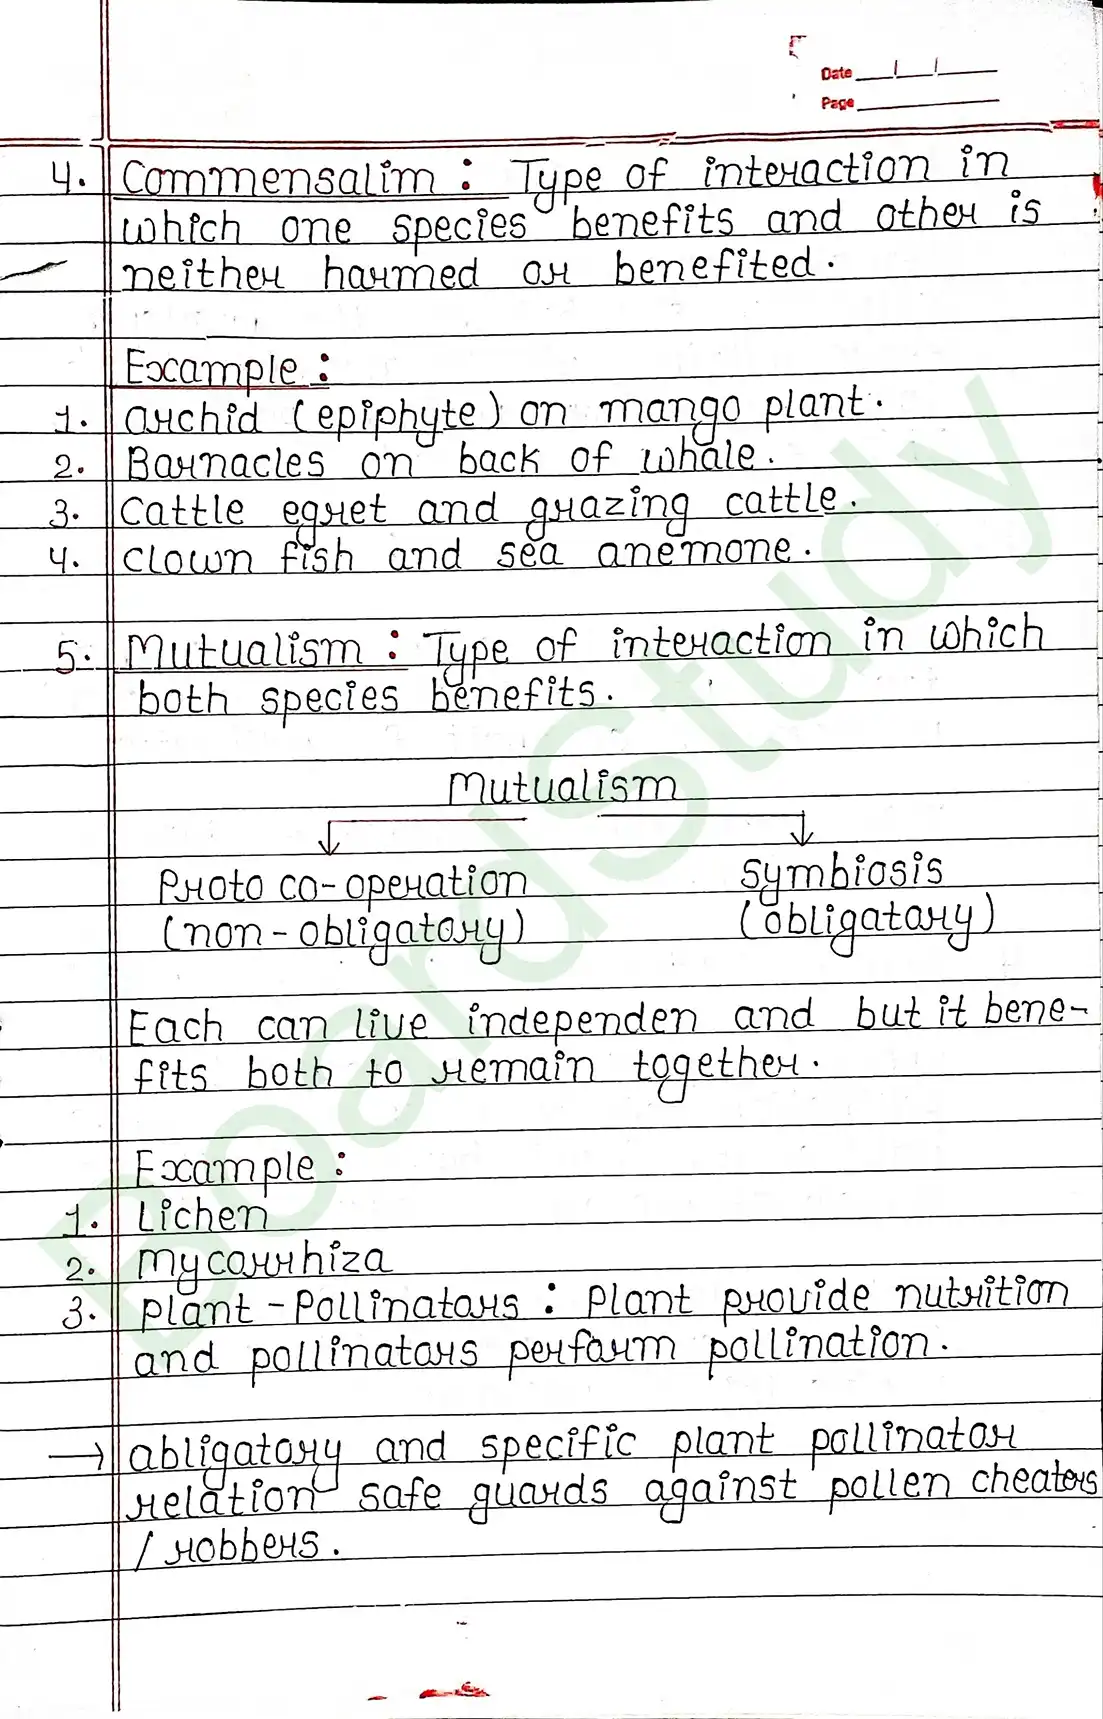 Date
Page
4. Commensalim : Type of interaction in
which one species benefits and other is
neither harmed or benefited.
Example :
1. orchid (epiphyte) on mango plant.
2. Barnacles on back of whale.
3. Cattle egret and grazing cattle.
4. Clown fish and sea anemone.
5. Mutualism : Type of interaction in which
both species benefits.
Mutualism
Proto co-operation
(non-obligatory)
Symbiosis
(obligatory)
Each can live independen and but it bene-
fits both to remain together.
Example :
1. Lichen
2. Mycorrhiza
3. Plant-Pollinators : Plant provide nutrition
and pollinators perform pollination.
→ obligatory and specific plant pollinator
relation safe guards against pollen cheaters
/ robbers.
BoardStudy